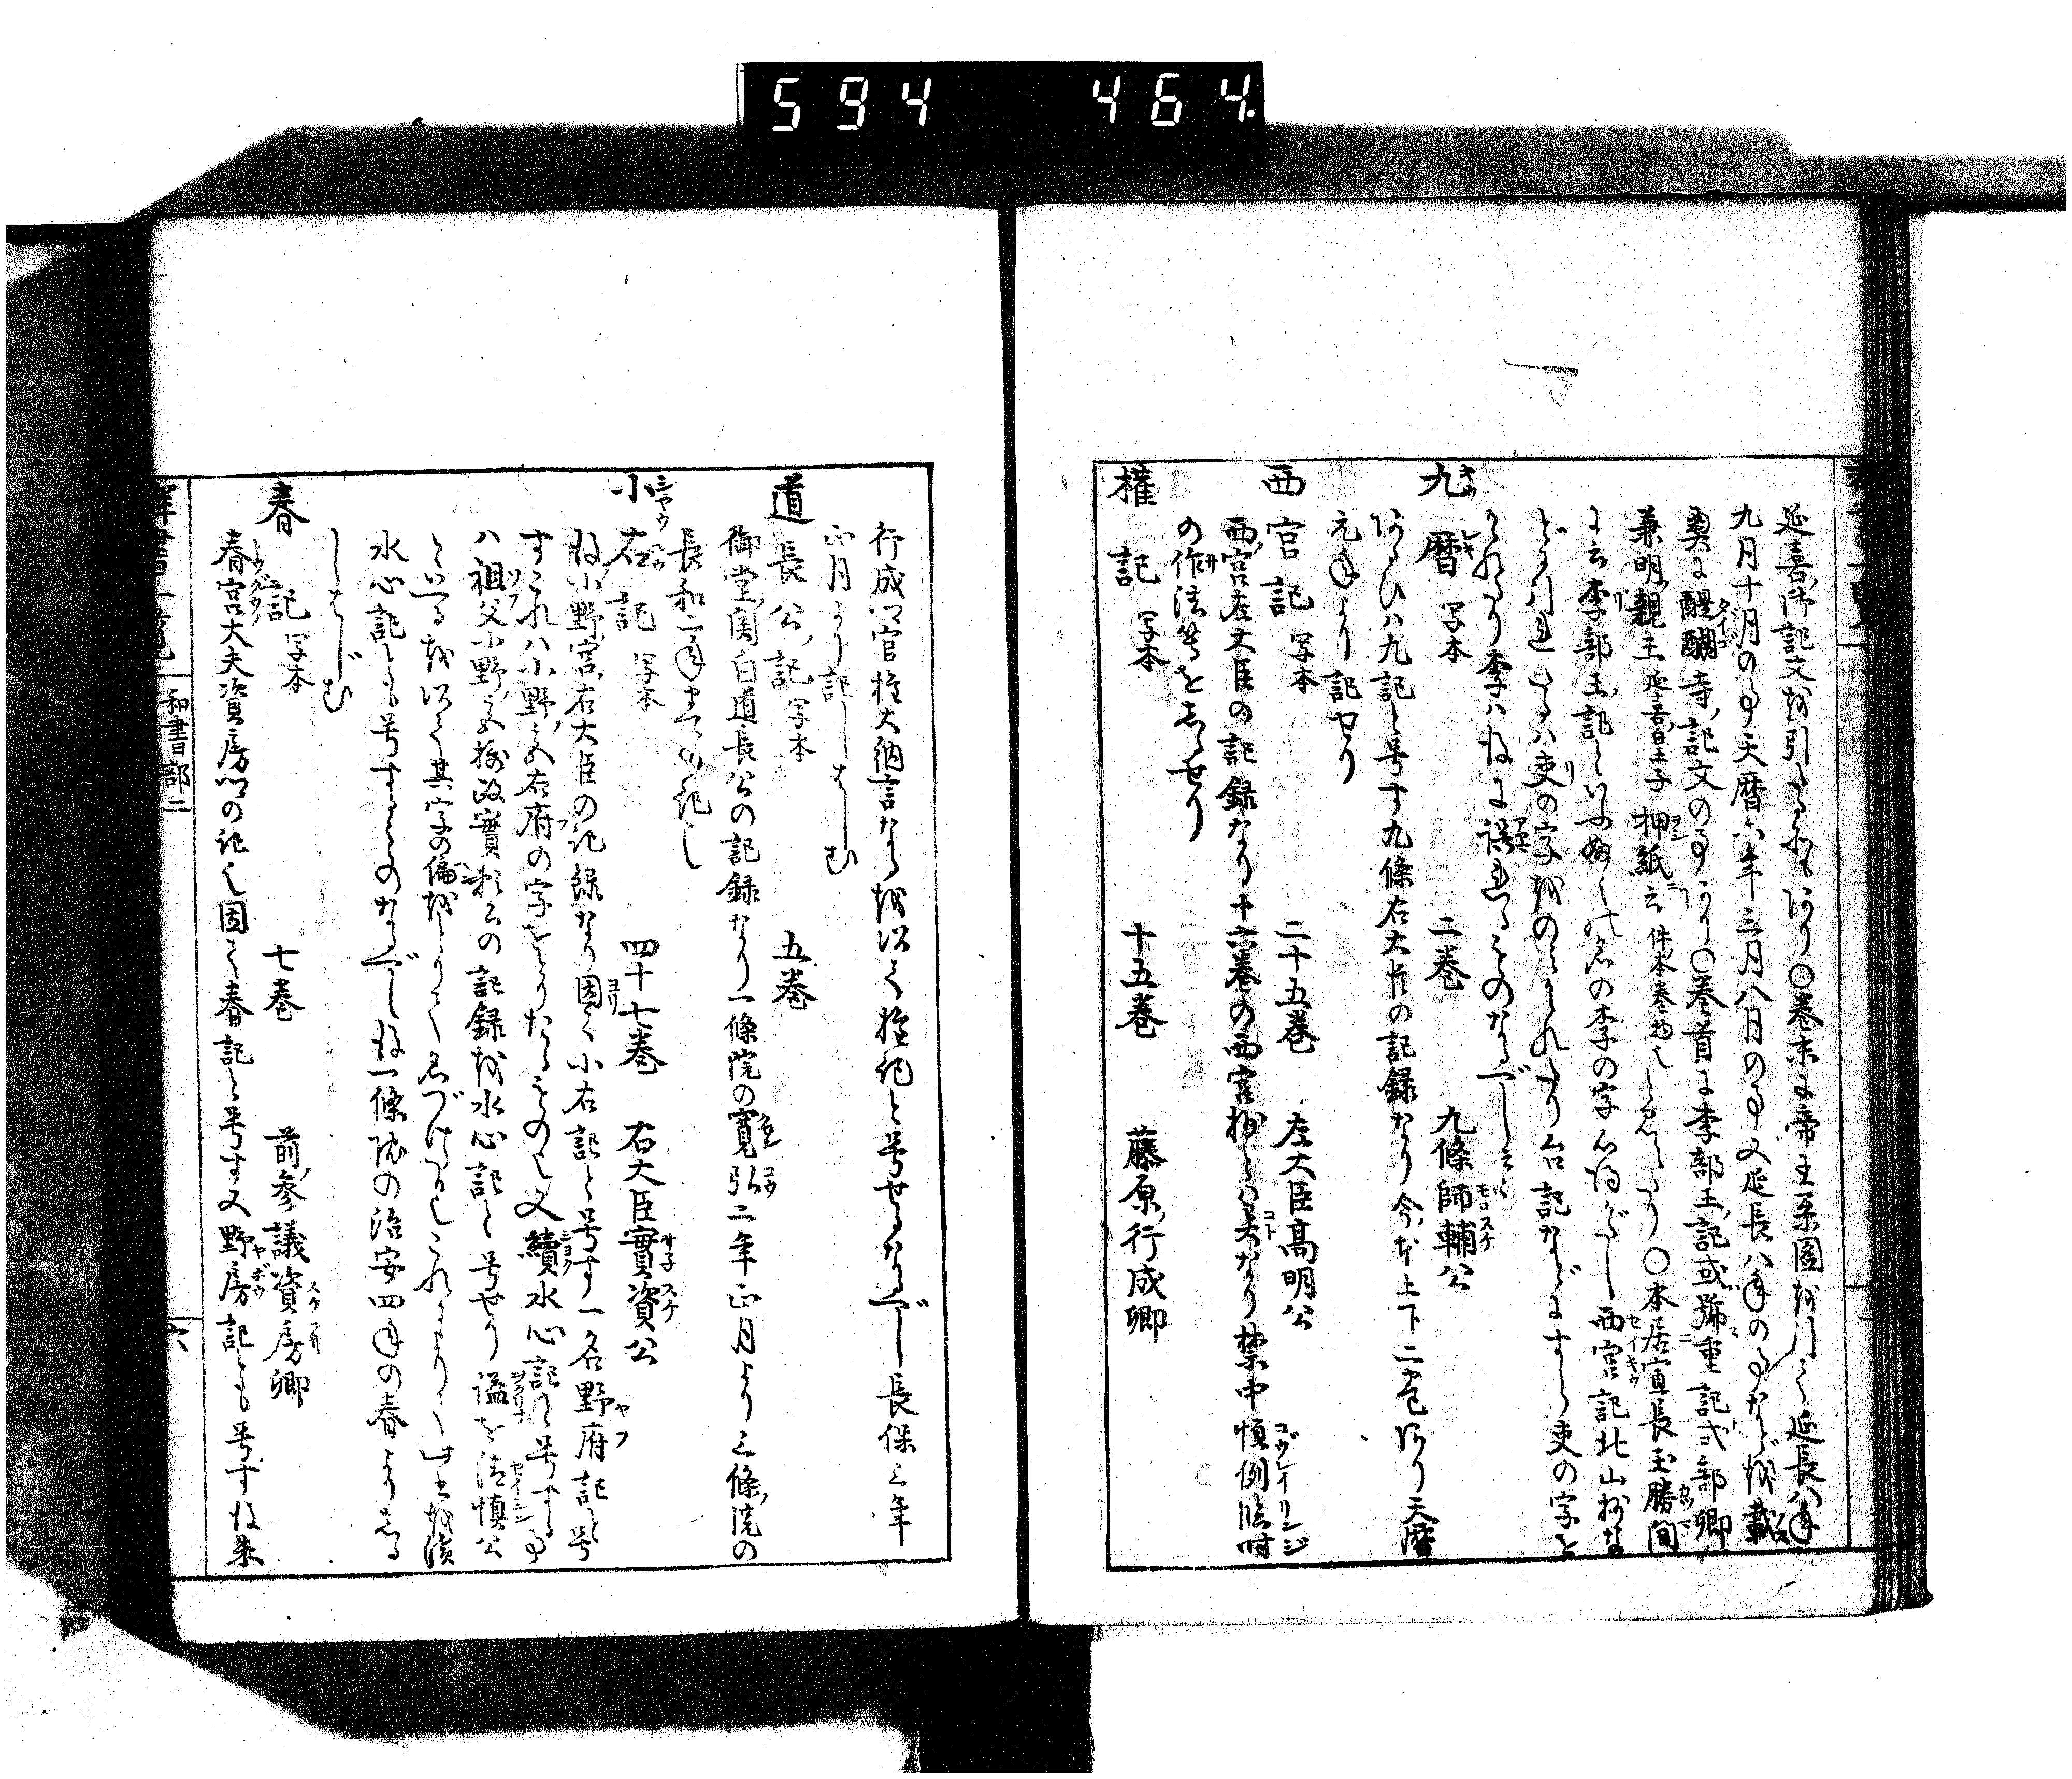 594 464.
延喜御記文を引たるもあり○巻末に帝王系図を引て延長八年
九月十月の事天暦六年三月八日の事又延長八年の事などを載
奥に醍醐寺記文の事あり○巻首に李部王記或号重記式部卿
兼明親王延喜皇子押紙云件本巻物也としるしたり○本居宣長玉勝間
に云李部王記といふ
の李の字心得がたし西宮記北山抄な
どに引たるは吏の字をのみかかれたり台記などにすら吏の字を
かかれたり李は後に誤れるものなるべし云々
九暦 写本 二巻 九條師輔公
あるひは九記と号す九條右大臣の記録なり今本上下二巻あり天暦
元年より記せり
西宮記 写本 二十五巻 左大臣高明公
西宮左大臣の記録なり十六巻の西宮抄とは異なり禁中恒例臨時
の作法等をしるせり
権記 写本 十五巻 藤原行成卿
行成卿官権大納言なるを以て権記と号せるなるべし長保三年
正月より記しはじむ
道長公記 写本 五巻
御堂関白道長公の記録なり一條院の寛弘二年正月より三條院の
長和二年までの記し
小右記 写本 四十七巻 右大臣實資公
後小野宮右大臣の記録なり因て小右記と号す一名野府記と号
すこれハ小野宮右府の字をとりたるものし又續水心記と号する事
ハ祖父小野宮摂政實頼公の記録を水心記と号せり謚を清慎公
といふを以て其字の偏をとりて名づけたるしこれによりて此書を續
水心記とも号するものなるべし後一條院の治安四年の春よりしる
しはじむ
春記 写本 七巻 前参議資房卿
春宮大夫資房卿の記し因て春記と号す又野房記とも号す後朱
群書一覧 和書部二 六